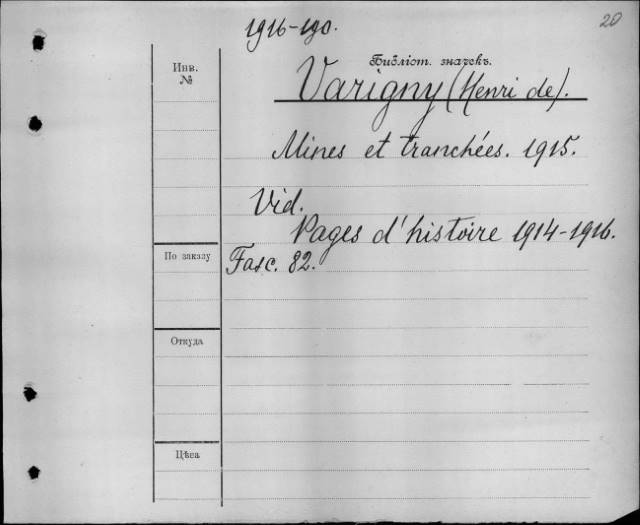 1916-190.
20
Библіот. значекъ.
Инв. №
Varigny (Henri de).
Mines et tranchées. 1915.
Vid.
Pages d'histoire 1914-1916.
По заказу
Fasc. 82.
Откуда
Цѣна